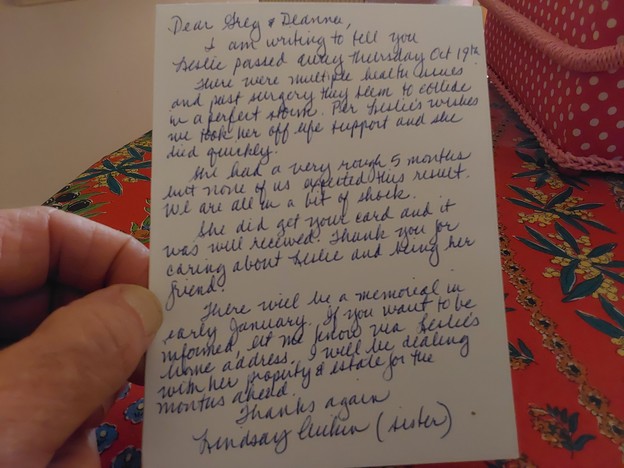 Dear Greg & Deanna,
I am writing to tell you
Leslie passed away Thursday Oct 19th.
There were multiple health issues
and post surgery they seem to collide
in a perfect storm. Per Leslie's wishes
we took her off life support and she
died quickly.
She had a very rough 5 months
but none of us expected this result.
We are all in a bit of shock.
She did get your card and it
was well received. Thank you for
caring about Leslie and being her
friend.
There will be a memorial in
early January. If you want to be
informed, let me know via Leslie's
home address. I will be dealing
with her property & estate for the
months ahead.
Thanks again
Lindsay (sister)